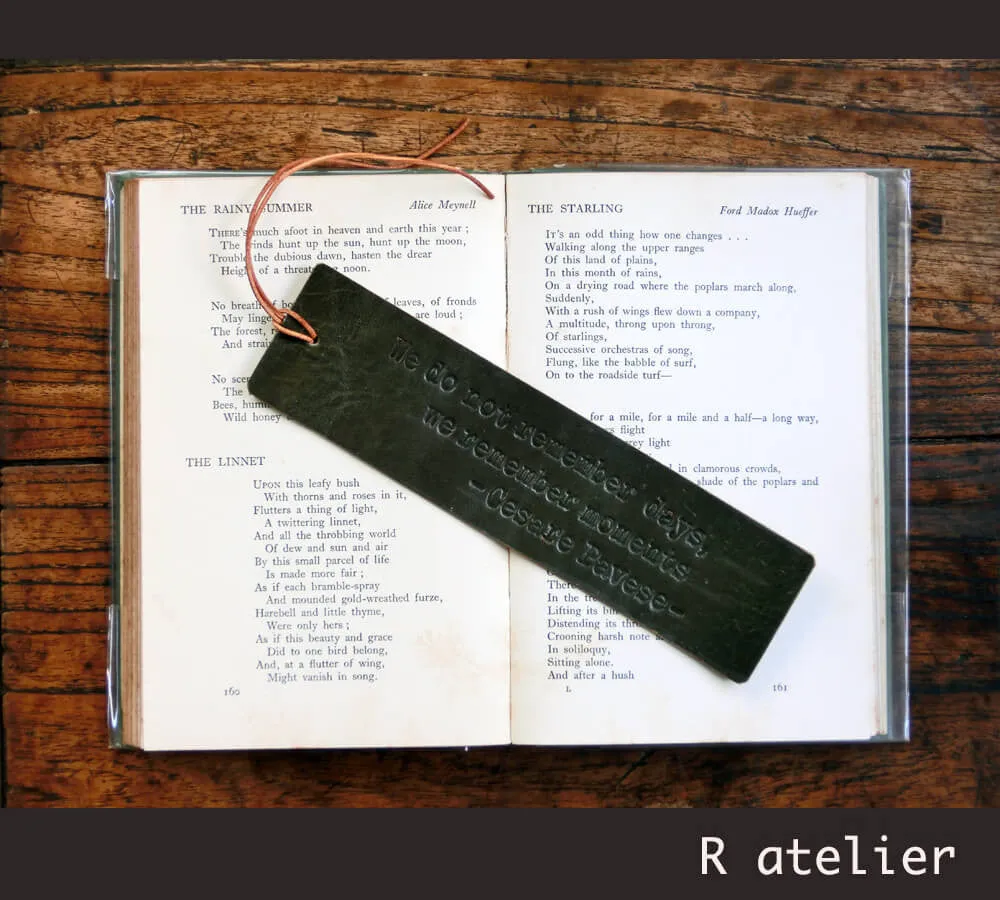 THE RAINY SUMMER
Alice Meynell
THERE'S much afoot in heaven and earth this year ;
The winds hunt up the sun, hunt up the moon,
Trouble the dubious dawn, hasten the drear
Height of a threat noon.
No breath of leaves, of fronds
May linge are loud ;
The forest,
And strai
No scen
The
Bees, humm
Wild honey
THE LINNET
UPON this leafy bush
With thorns and roses in it,
Flutters a thing of light,
A twittering linnet,
And all the throbbing world
Of dew and sun and air
By this small parcel of life
Is made more fair ;
As if each bramble-spray
And mounded gold-wreathed furze,
Harebell and little thyme,
Were only hers ;
As if this beauty and grace
Did to one bird belong,
And, at a flutter of wing,
Might vanish in song.
160
THE STARLING
Ford Madox Hueffer
IT'S an odd thing how one changes . . .
Walking along the upper ranges
Of this land of plains,
In this month of rains,
On a drying road where the poplars march along,
Suddenly,
With a rush of wings flew down a company,
A multitude, throng upon throng,
Of starlings,
Successive orchestras of song,
Flung, like the babble of surf,
On to the roadside turf—
for a mile, for a mile and a half—a long way,
flight
grey light
in clamorous crowds,
shade of the poplars and
There
In the tre
Lifting its bi
Distending its thr
Crooning harsh note
In soliloquy,
Sitting alone.
And after a hush
L
161
We do not remember days,
we remember moments
-Cesare Pavese-
R atelier